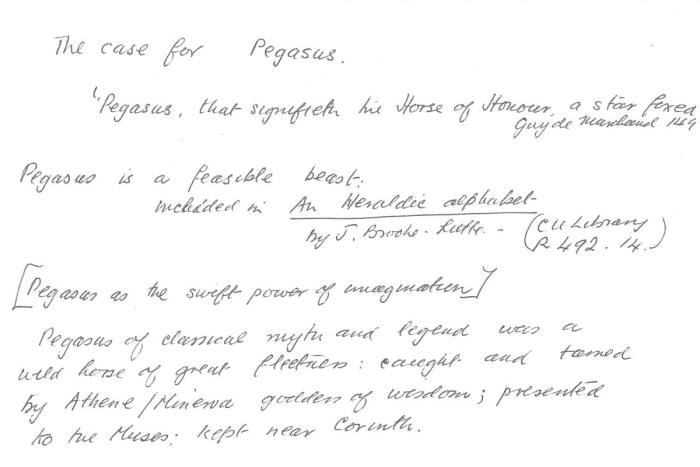 The case for Pegasus.
"Pegasus, that signifieth the Horse of Honour, a star fixed
Guy de Marchand 149
Pegasus is a feasible beast:
included in An Heraldic alphabet
by J. Brooke-Little. - (CU Library
R 492. 14.)
[Pegasus as the swift power of imagination]
Pegasus of classical myth and legend was a
wild horse of great fleetness: caught and tamed
by Athene/Minerva goddess of wisdom; presented
to the Muses; kept near Corinth.